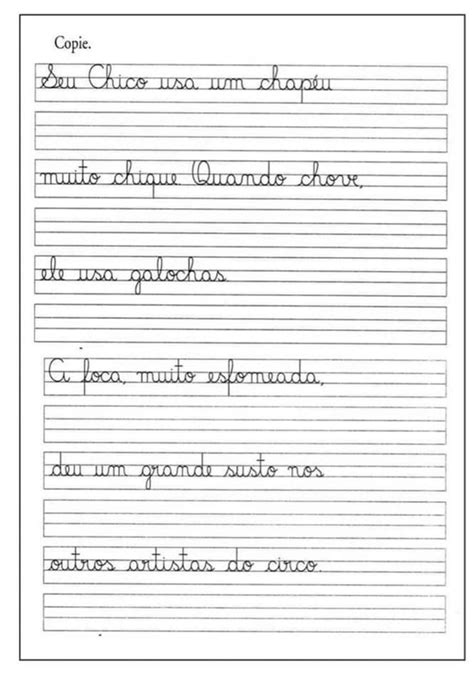 Copie.
Seu Chico usa um chapéu
muito chique. Quando chove,
ele usa galochas.
A foca, muito esfomeada,
deu um grande susto nos
outros artistas do circo.